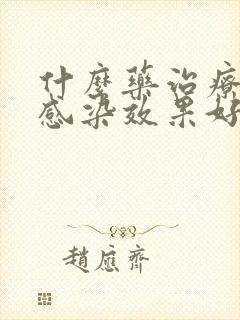 什麼藥治療
感染效果好
趙應齊